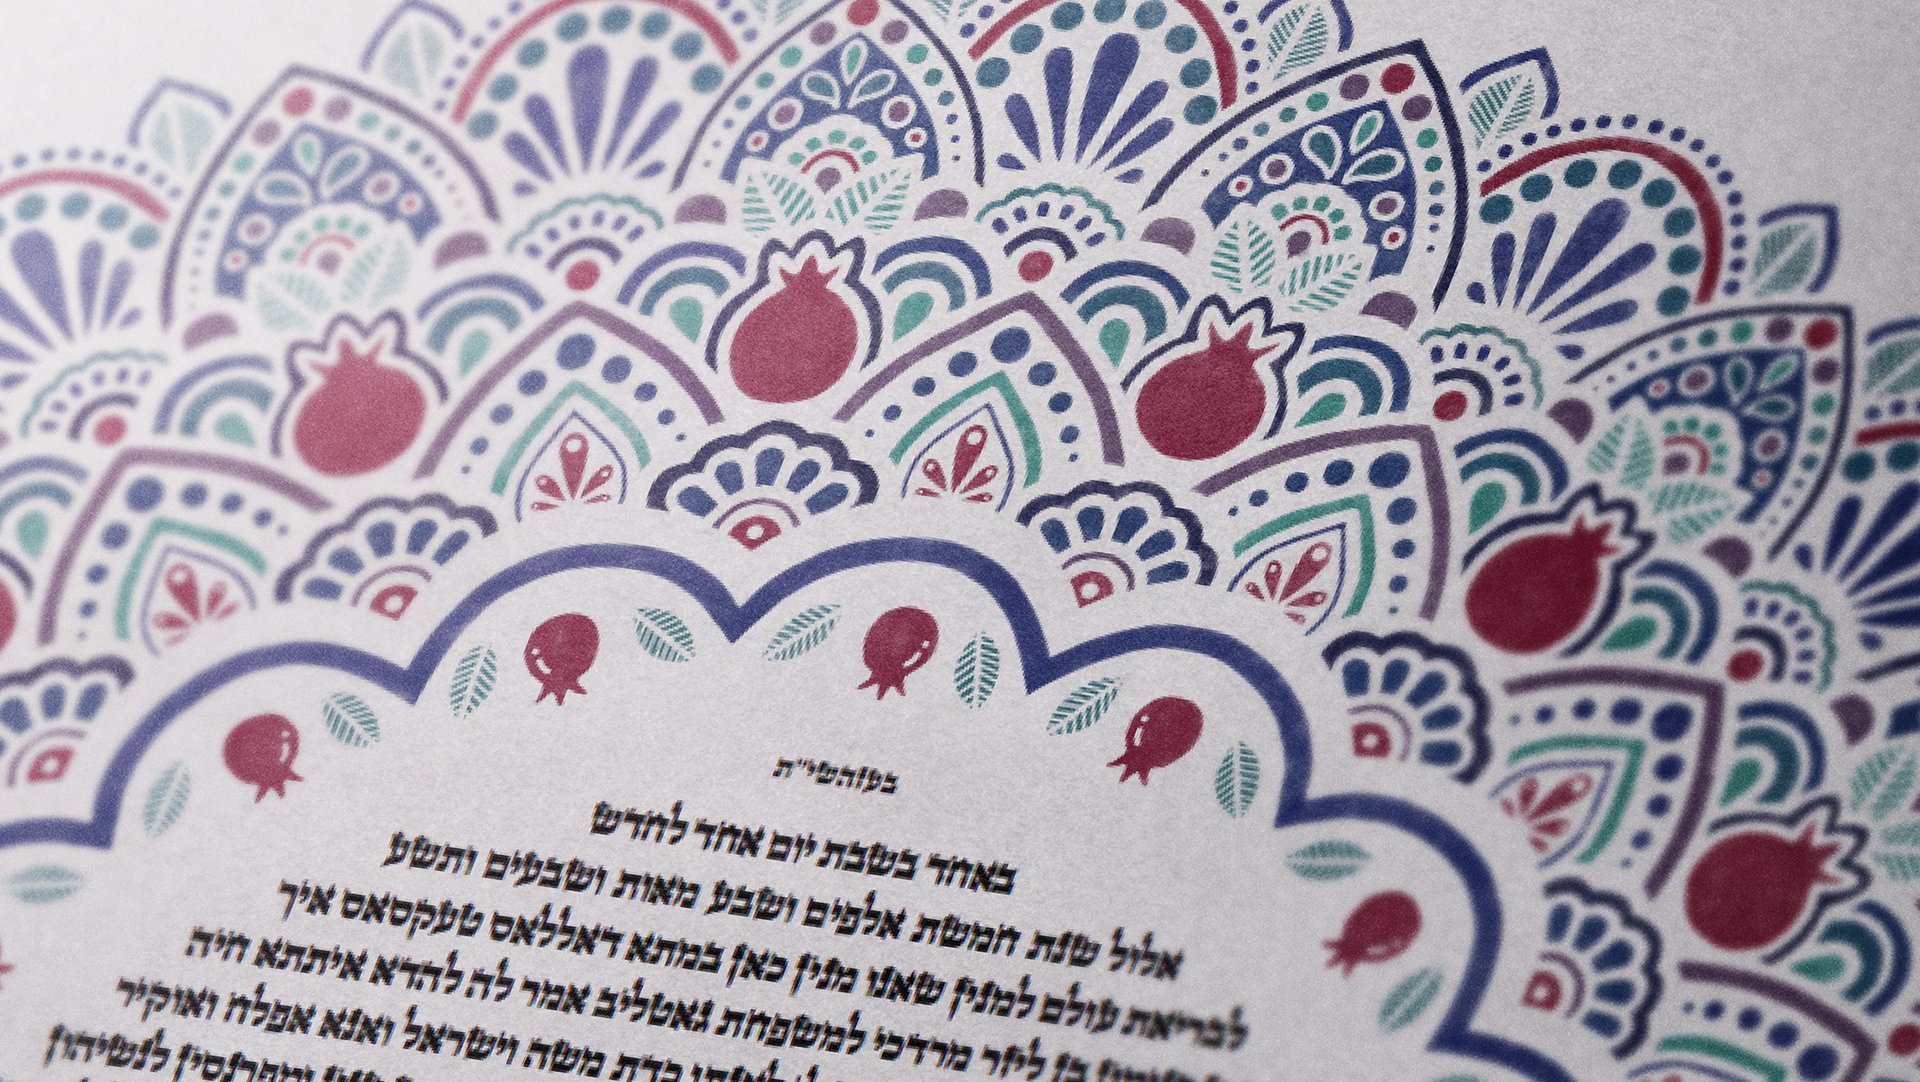 בעזהשי״ת
באחד בשבת יום אחד לחדש
אלול שנת חמשת אלפים ושבע מאות ושבעים ותשע
לבריאת עולם למנין שאנו מנין כאן במתא דאללאס טעקסאס איך
בן ליזר מרדכי למשפחת גאטליב אמר לה להדא איתתא חיה
כדת משה וישראל ואנא אפלח ואוקיר
ומפרנסין לנשיהון